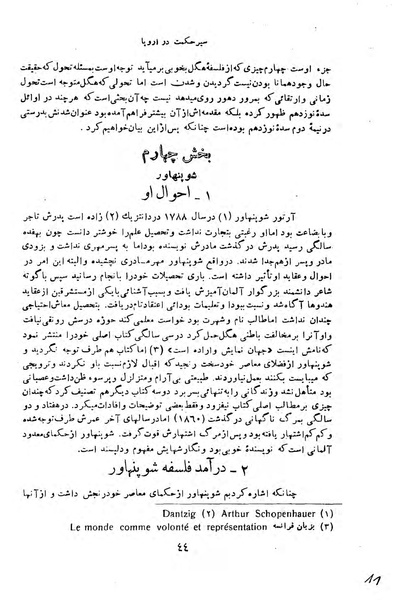 سیر حکمت در اروپا
جزء اوست چهارم چیزی که از فلسفهٔ هگل بخوبی برمیآید توجه اوست بمسئله تحول که حقیقت
حال وجود همانا بودن نیست گردیدن و شدن است اما تحولی که هگل متوجه است تحول
زمانی و ارتقائی که بمرور دهور روی میدهد نیست چه آن بحثی است که هر چند در اوائل
سدهٔ نوزدهم ظهور کرده بلکه مقدمه‌اش از آن پیشتر فراهم آمده بود عنوان شدنش بدرستی
در نیمهٔ دوم سدهٔ نوزدهم بوده است چنانکه پس از این بیان خواهیم کرد.
بخش چهارم
شوپنهاور
۱ - احوال او
آرتور شوپنهاور (۱) در سال ۱۷۸۸ در دانتزیك (۲) زاده است پدرش تاجر
و با بضاعت بود اما او رغبتی بتجارت نداشت و تحصیل علم را خوشتر داشت چون بهفده
سالگی رسید پدرش درگذشت مادرش نویسنده بود اما به پسر مهری نداشت و بزودی
مادر و پسر از هم جدا شدند. در واقع شوپنهاور مهر مادری نچشیده و البته این امر در
احوال و عقاید او تأثیر داشته است. باری تحصیلات خود را بانجام رسانید سپس با گوته
شاعر دانشمند بزرگوار آلمان آمیزش یافت و بسبب آشنائی با یکی از مستشرقین از عقاید
هندوها آگاه شد و نسبت ببودا و تعلیمات بودائی اعتقاد تام دریافت. بتحصیل معاش احتیاجی
چندان نداشت اما طالب نام و شهرت بود خواست معلمی کند حوزهٔ درسش رونقی نیافت
و او آنرا بر مخالفت باطنی هگل حمل کرد در سی سالگی کتاب اصلی خود را منتشر نمود
که نامش اینست «جهان نمایش و اراده است» (۳) اما کتاب هم طرف توجه نگردید و
شوپنهاور از فضلای معاصر خود سخت رنجید که اقبال لازم نسبت باو نکردند و ترویجی
که میبایست بکنند بعمل نیاوردند. طبیعتی بی‌آرام و متزلزل و پر سوء ظن داشت و عصبانی
بود متأهل نشد و زندگانی را به تنهائی بسر برد دوسه کتاب دیگر هم تصنیف کرد که چندان
چیزی بر مطالب اصلی کتاب نیفزود و فقط بعضی توضیحات و افادات میکرد. در هفتاد و دو
سالگی بمرگ ناگهانی درگذشت (۱۸۶۰) اما در سالهای آخر عمرش طرف توجه شده
و کم‌کم اشتهار یافته بود و پس از مرگ اشتهارش قوت گرفت. شوپنهاور از حکمای معدود
آلمانی است که نویسندهٔ خوبی بود و نگارشهایش مفهوم و دلپسند است.
۲ - درآمد فلسفه شوپنهاور
چنانکه اشاره کردیم شوپنهاور از حکمای معاصر خود رنجش داشت و از آنها
(۱) Arthur Schopenhauer (۲) Dantzig
(۳) بزبان فرانسه Le monde comme volonté et représentation
٤٤
11